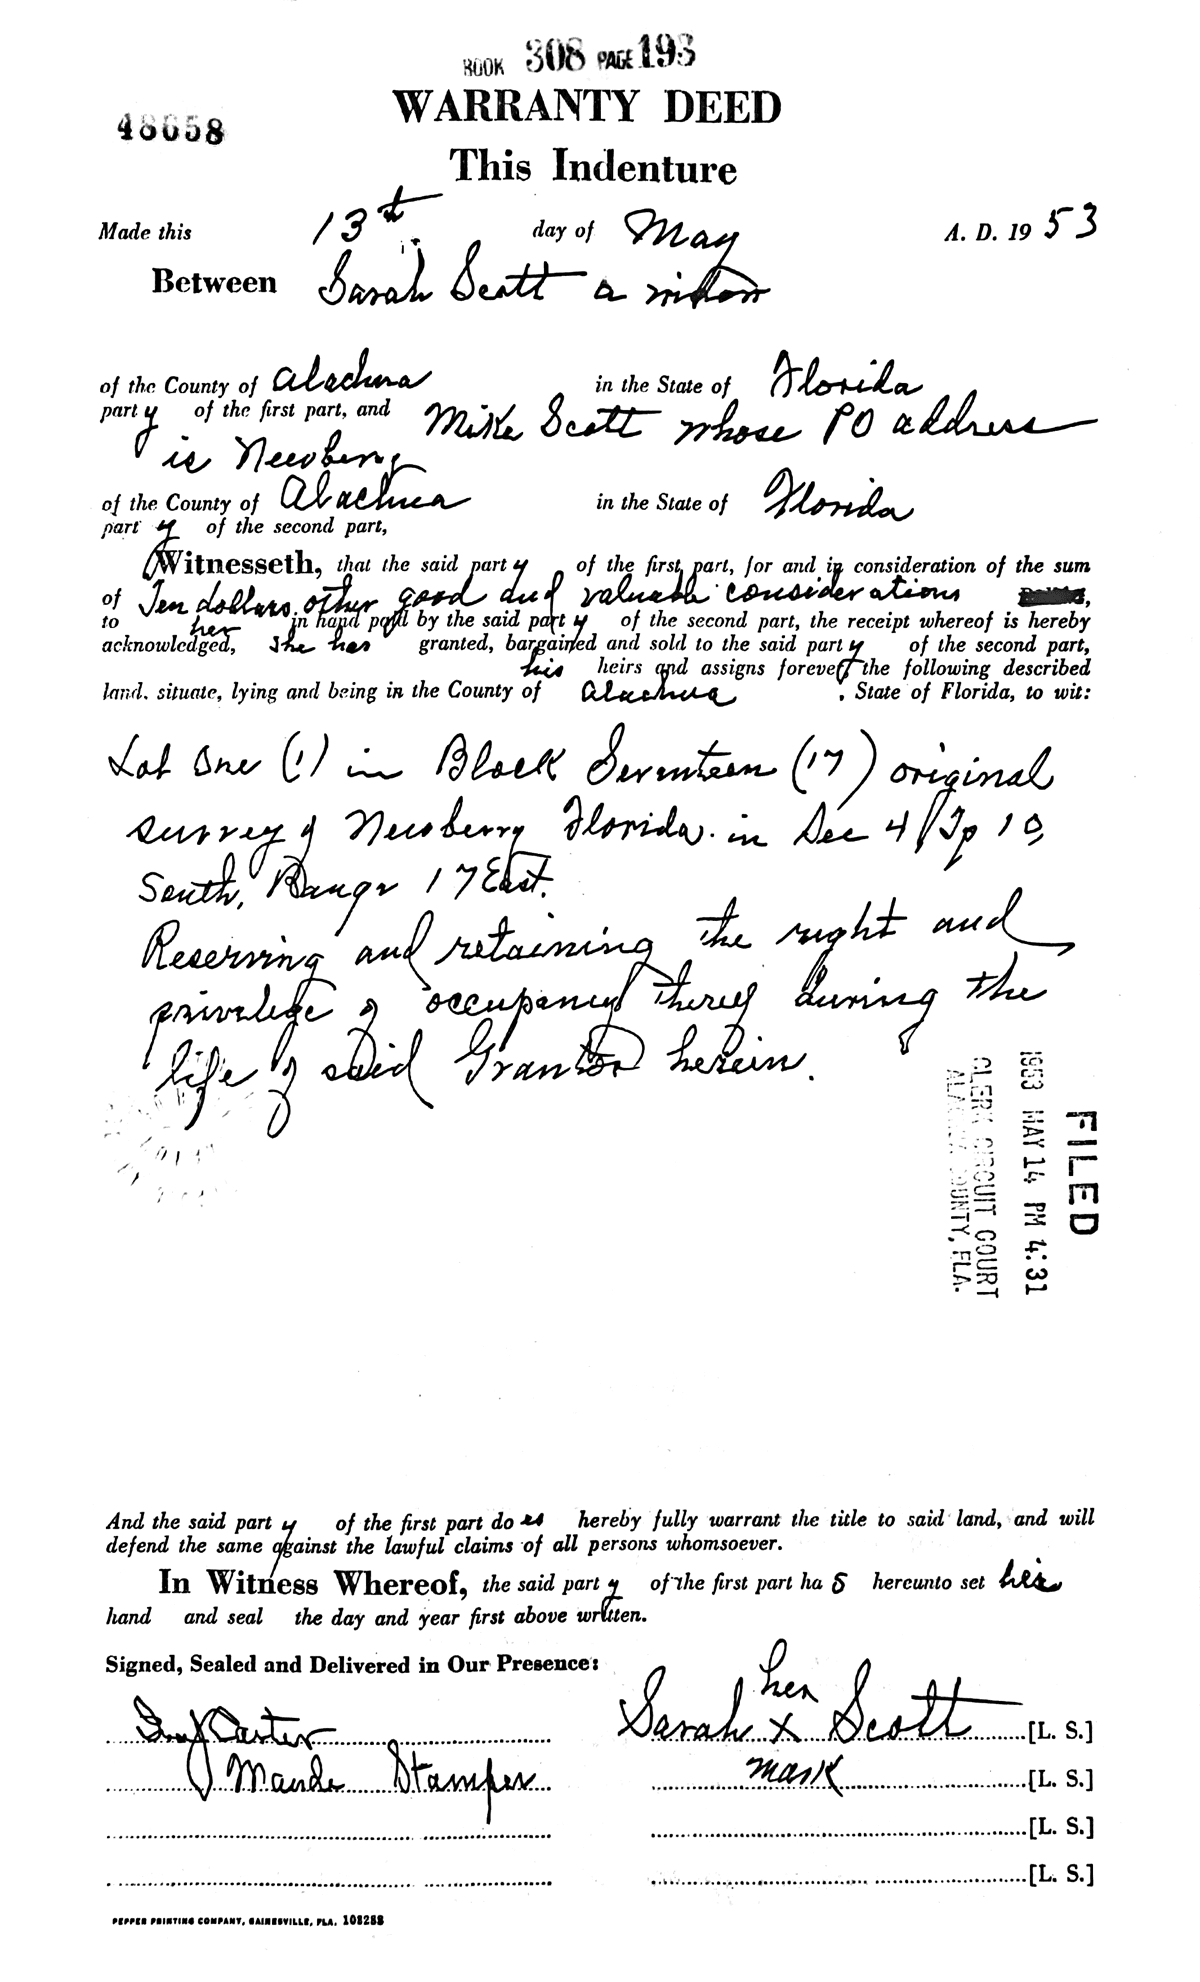 BOOK 308 PAGE 193
48658
WARRANTY DEED
This Indenture
Made this 13th day of May A. D. 1953
Between Sarah Scott a widow
of the County of Alachua in the State of Florida
party of the first part, and Mike Scott whose PO address
is Newberry
of the County of Alachua in the State of Florida
party of the second part,
Witnesseth, that the said party of the first part, for and in consideration of the sum
of Ten dollars other good and valuable considerations
to her in hand paid by the said party of the second part, the receipt whereof is hereby
acknowledged, she has granted, bargained and sold to the said party of the second part,
his heirs and assigns forever, the following described
land, situate, lying and being in the County of Alachua, State of Florida, to wit:
Lot One (1) in Block Seventeen (17) original
survey of Newberry Florida. in Sec 4 Tp 10,
South, Range 17 East.
Reserving and retaining the right and
privilege of occupancy thereof during the
life of said Grantor herein.
FILED
1953 MAY 14 PM 4:31
CLERK CIRCUIT COURT
ALACHUA COUNTY, FLA.
And the said party of the first part does hereby fully warrant the title to said land, and will
defend the same against the lawful claims of all persons whomsoever.
In Witness Whereof, the said party of the first part has hereunto set her
hand and seal the day and year first above written.
Signed, Sealed and Delivered in Our Presence:
her
Carter Sarah x Scott [L. S.]
Maude Stamper mark [L. S.]
[L. S.]
[L. S.]
PEPPER PRINTING COMPANY, GAINESVILLE, FLA. 108288